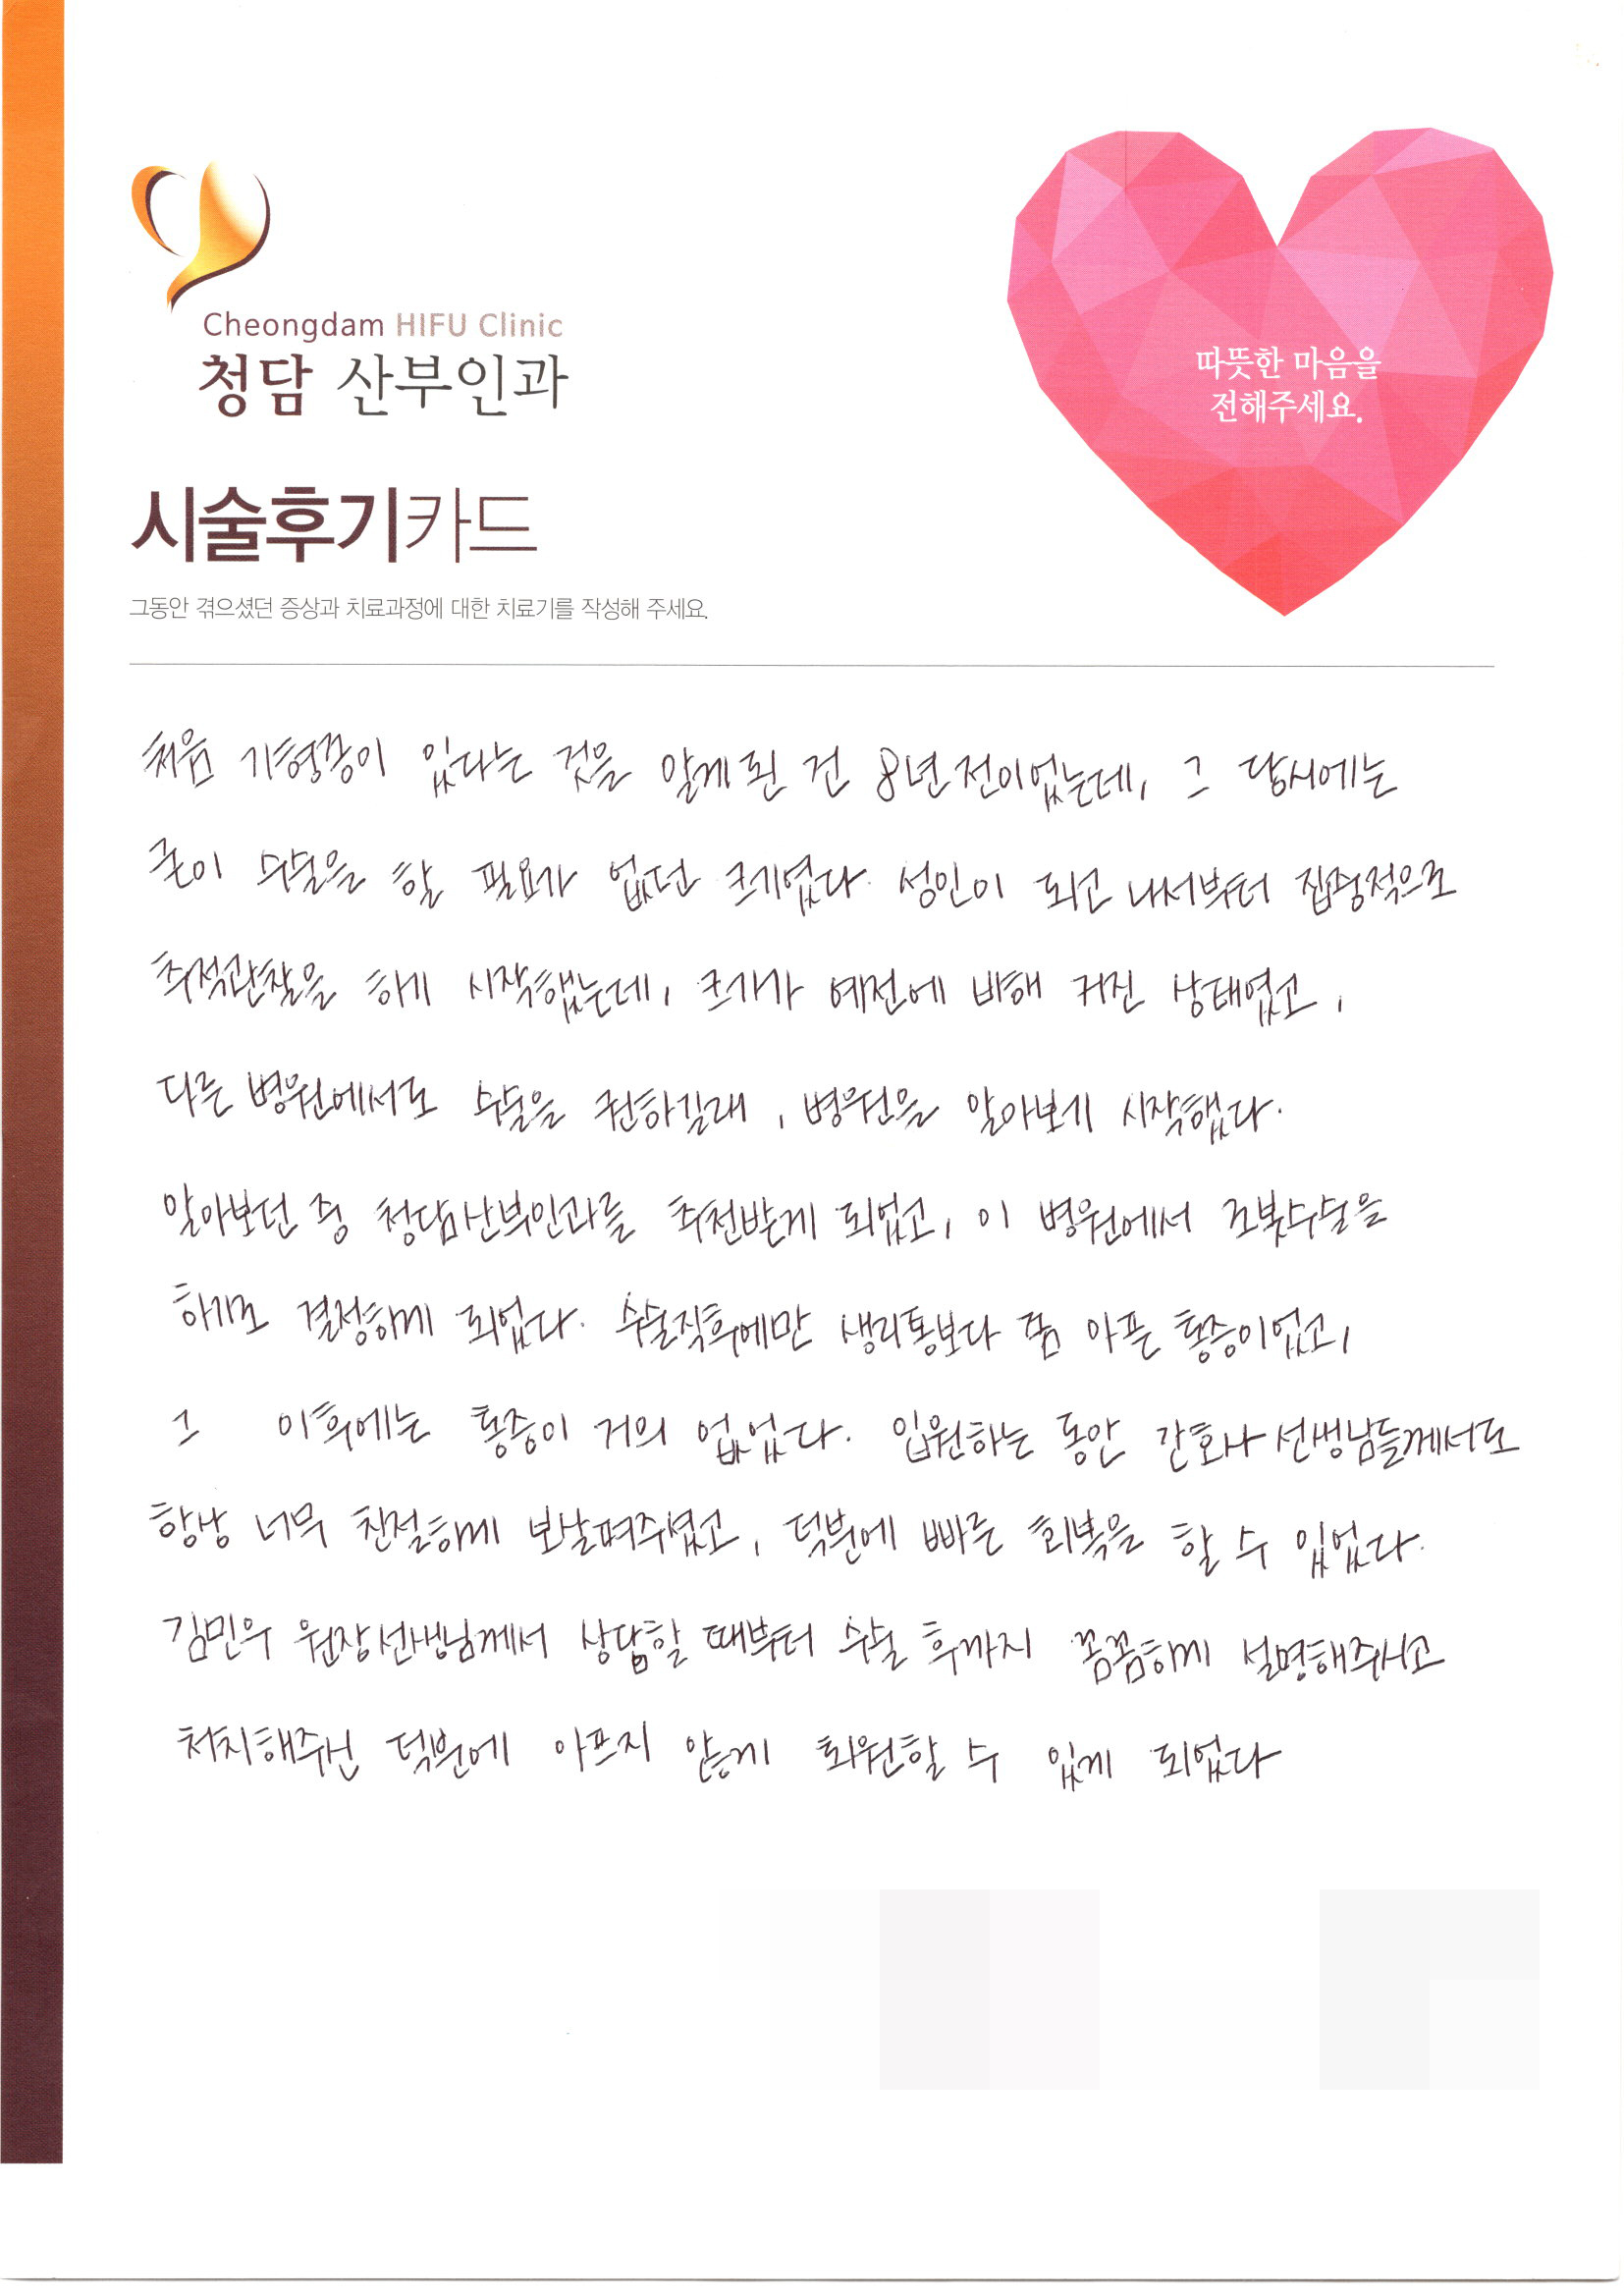 Cheongdam HIFU Clinic
청담 산부인과
따뜻한 마음을
전해주세요.
시술후기카드
그동안 겪으셨던 증상과 치료과정에 대한 치료기를 작성해 주세요.
처음 기형종이 있다는 것을 알게 된 건 8년 전이었는데, 그 당시에는
굳이 수술을 할 필요가 없던 크기였다. 성인이 되고 나서부터 집중적으로
추적관찰을 하게 시작했는데, 크기가 예전에 비해 커진 상태였고,
다른 병원에서도 수술을 권하길래, 병원을 알아보기 시작했다.
알아보던 중 청담산부인과를 추천받게 되었고, 이 병원에서 로봇수술을
하기로 결정하게 되었다. 수술직후에만 생리통보다 좀 아픈 통증이었고,
그 이후에는 통증이 거의 없었다. 입원하는 동안 간호사 선생님들께서도
항상 너무 친절하게 보살펴주셨고, 덕분에 빠른 회복을 할 수 있었다.
김민우 원장선생님께서 상담할 때부터 수술 후까지 꼼꼼하게 설명해주시고
처치해주신 덕분에 아프지 않게 퇴원할 수 있게 되었다